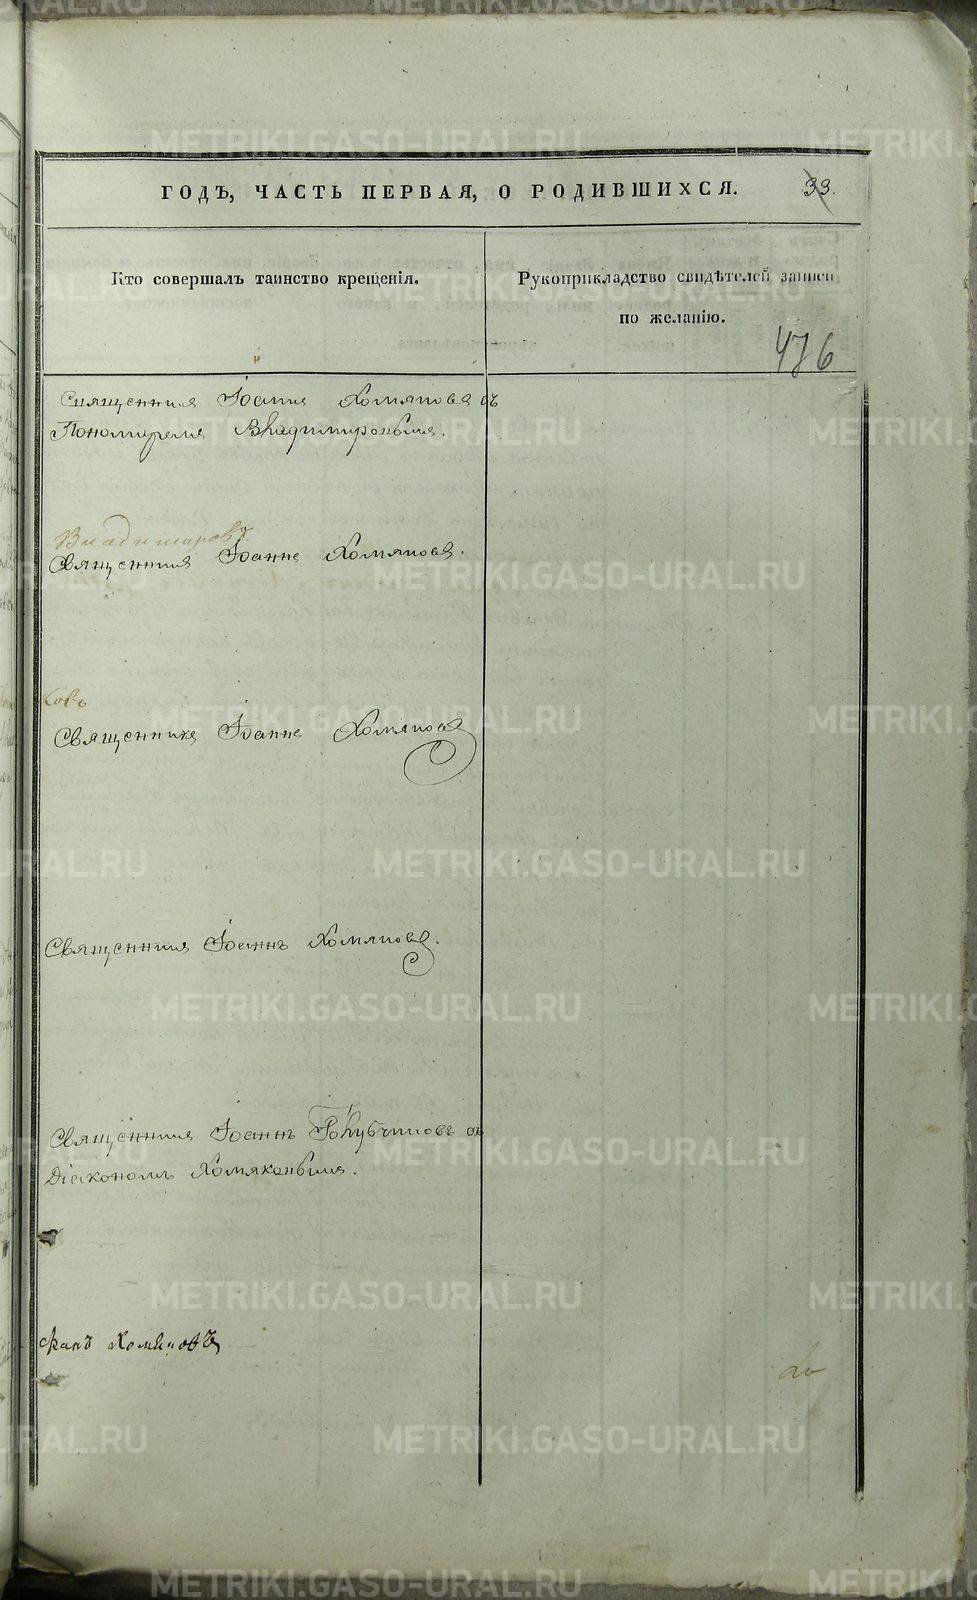 ГОДЪ, ЧАСТЬ ПЕРВАЯ, О РОДИВШИХСЯ. 33.
Кто совершалъ таинство крещенія.
Рукоприкладство свидѣтелей записи
по желанію.
476
Священникъ Іоаннъ Хомяковъ съ
Пономаремъ Владимировымъ.
Владимировъ
Священникъ Іоаннъ Хомяковъ.
ковъ
Священникъ Іоаннъ Хомяковъ
Священникъ Іоаннъ Хомяковъ.
Священникъ Іоаннъ Голубчиковъ съ
Діакономъ Хомяковымъ.
Хомяковъ
METRIKI.GASO-URAL.RU